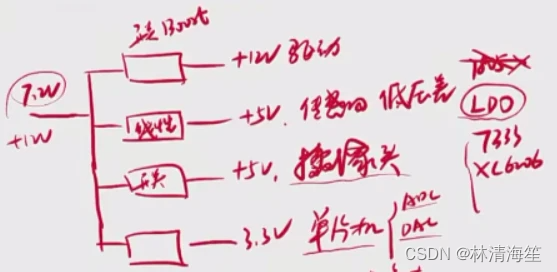 Boost
7.2V
+12V
+12V 驱动
线性
+5V, 传感器 低压差
LDO
7333
XL6206
开关
+5V, 摄像头
3.3V 单片机
ADC
DAC
CSDN @林清海笙